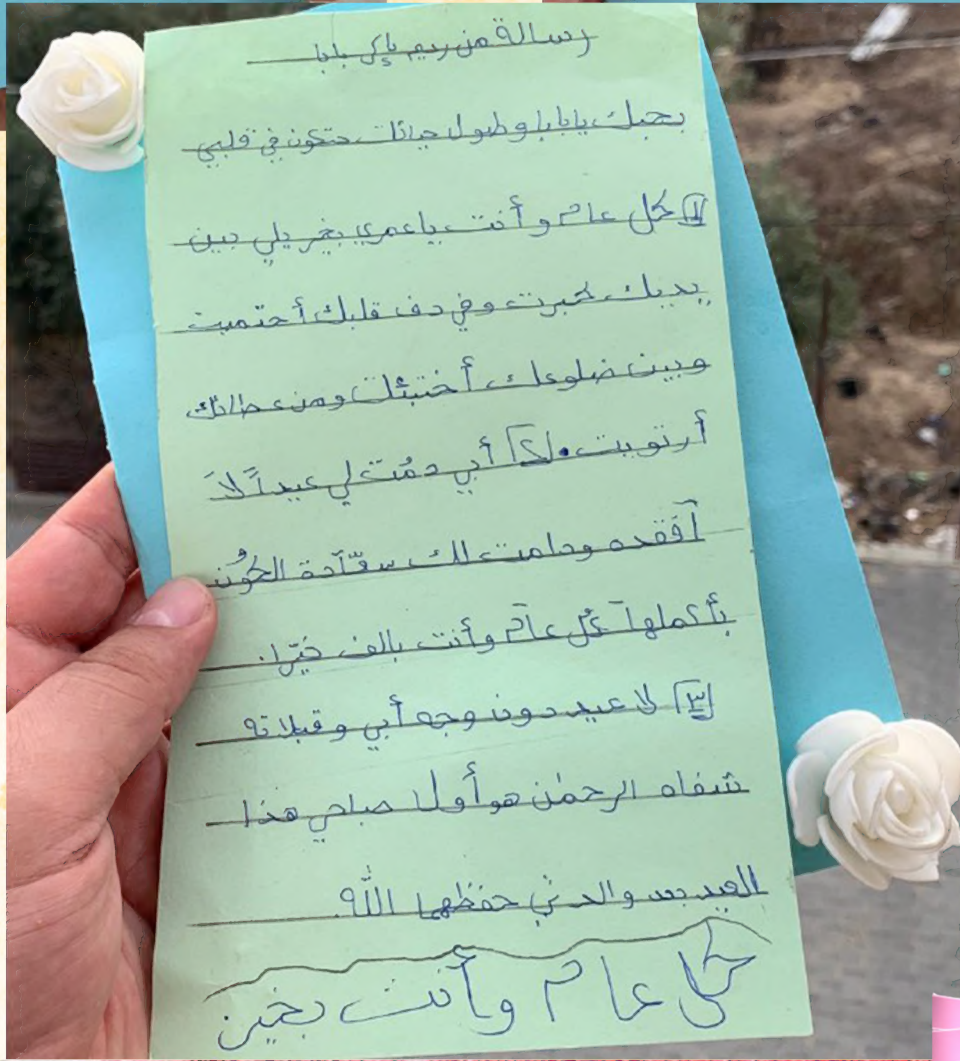 رسالة من ريم إلى بابا
بحبك يا بابا وطول حياتك حتكون في قلبي
[1] كل عام وأنت يا عمري بخير يلي بين
يديك كبرت وفي دف قلبك أحتميت
وبين ضلوعك أختبئت ومن عطائك
أرتويت. [2] أبي دمُت لي عيداً لاَ
آفقده ودامت لك سعّآدة الكوُن
بأكملهآ كُل عآم وأنت بالف خيّر.
[3] لا عيد دون وجه أبي وقبلاته
شفاه الرحمٰن هو أول صباحي هذا
العيد بعد والدتي حفظهما اللّٰه.
كل عام وأنت بخير